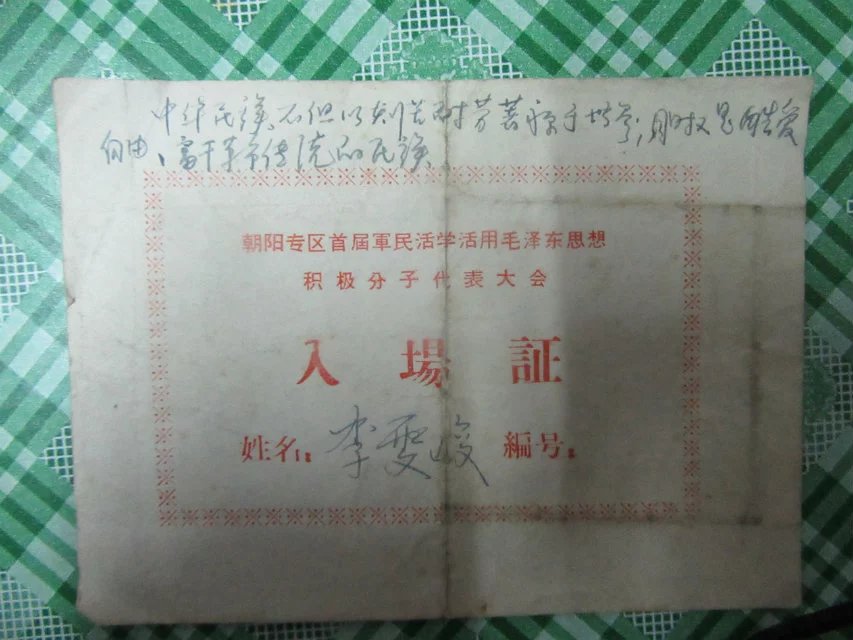 中华民族不但以刻苦耐劳著称于世界,同时又是酷爱
自由、富于革命传统的民族
朝阳专区首屆軍民活学活用毛泽东思想
积极分子代表大会
入場証
姓名:李雯峻 編号: